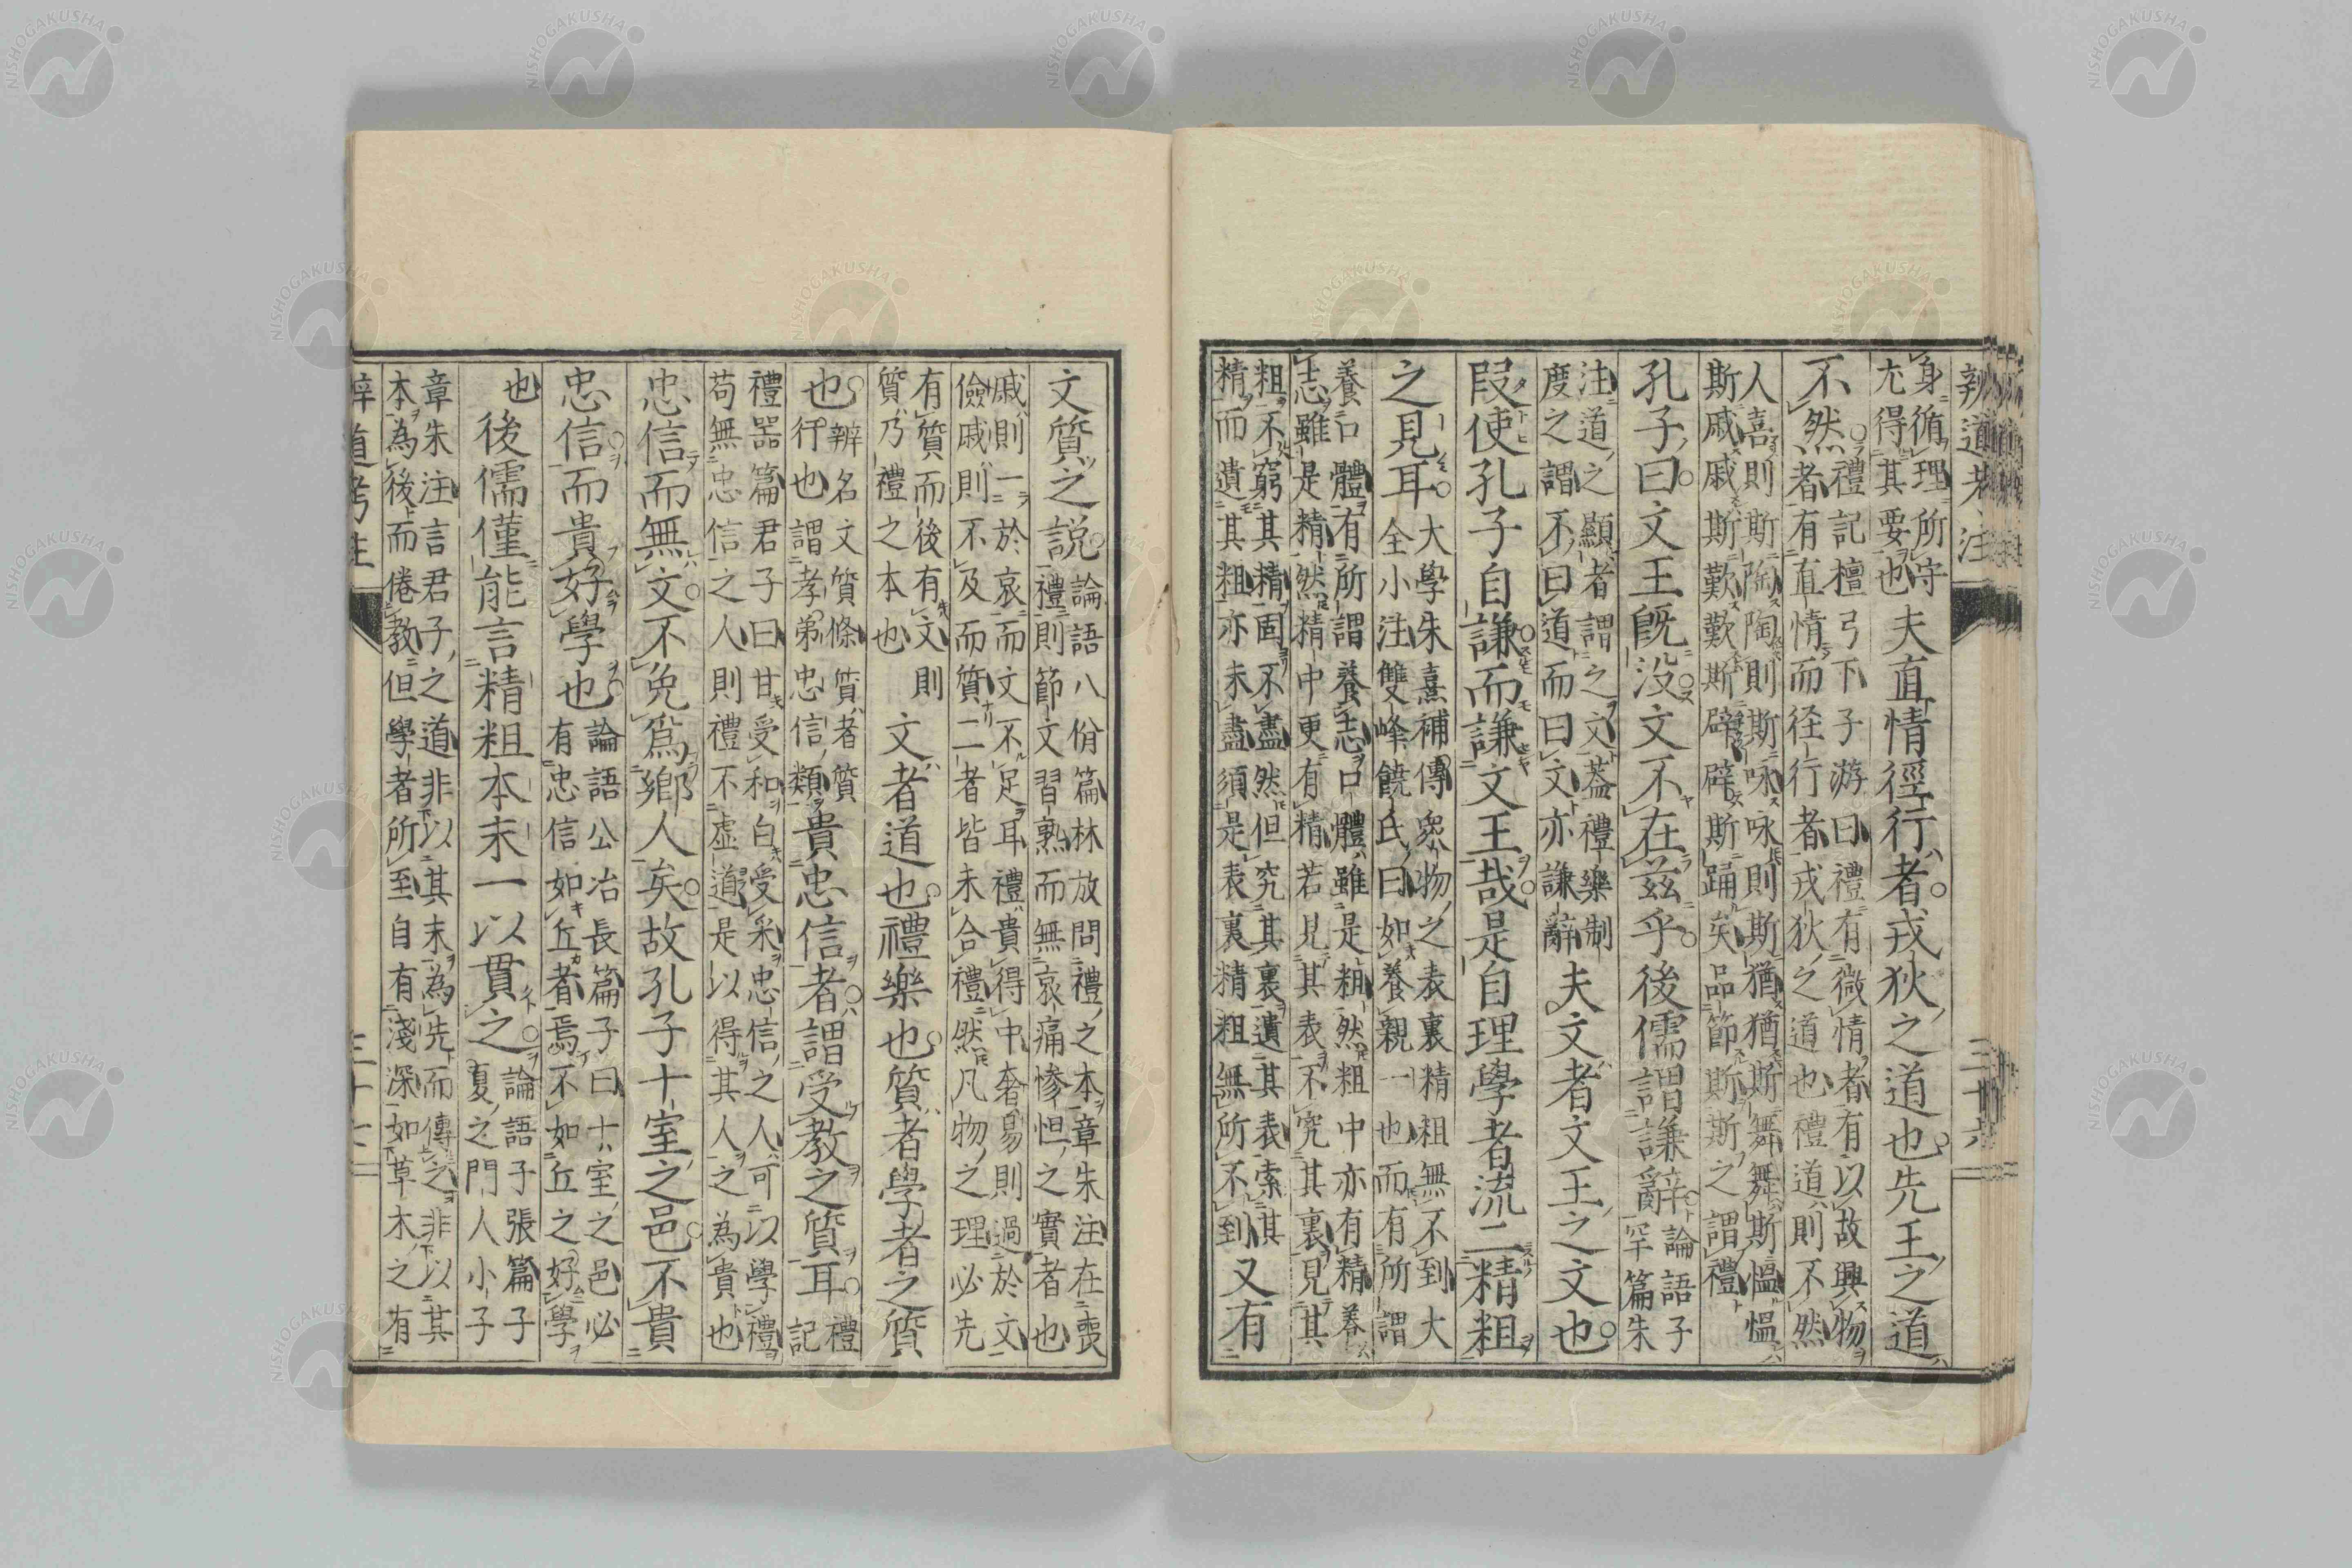 辨道考注 三十六
身循理所守尤得其要也夫直情徑行者戎狄之道也先王之道
不然禮記檀弓下子游曰禮有微情者有以故興物者有直情而径行者戎狄之道也禮道則不然
人喜則斯陶陶則斯咏咏則斯猶猶斯舞舞斯慍慍斯戚戚斯歎歎斯辟辟斯踊矣品節斯斯之謂禮
孔子曰文王既没文不在茲乎後儒謂謙辭論語子罕篇朱
注道之顯者謂之文蓋禮樂制度之謂不曰道而曰文亦謙辭夫文者文王之文也
叚使孔子自謙而謙文王哉是自理學者流二精粗
之見耳大學朱熹補傳衆物之表裏精粗無不到大全小注雙峰饒氏曰如養親一也而有所謂
養口體有所謂養志口體雖是粗然粗中亦有精養志雖是精然精中更有精若見其表不究其裏見其
粗不窮其精固不盡然但究其裏遺其表索其精而遺其粗亦未盡須是表裏精粗無所不到又有
文質之說論語八佾篇林放問禮之本章朱注在喪禮則節文習熟而無哀痛慘怛之實者也
戚則一於哀而文不足耳禮貴得中奢易則過於文儉戚則不及而質二者皆未合禮然凡物之理必先
有質而後有文則質乃禮之本也文者道也禮樂也質者學者之質
也辨名文質條質者質行也謂孝弟忠信類貴忠信者謂受教之質耳禮記
禮器篇君子曰甘受和白受采忠信之人可以學禮苟無忠信之人則禮不虚道是以得其人之為貴也
忠信而無文不免爲鄉人矣故孔子十室之邑不貴
忠信而貴好學也論語公冶長篇子曰十室之邑必有忠信如丘者焉不如丘之好學
也後儒僅能言精粗本末一以貫之論語子張篇子夏之門人小子
章朱注言君子之道非以其末為先而傳之非以其本為後而倦教但學者所至自有淺深如草木之有
辨道考注